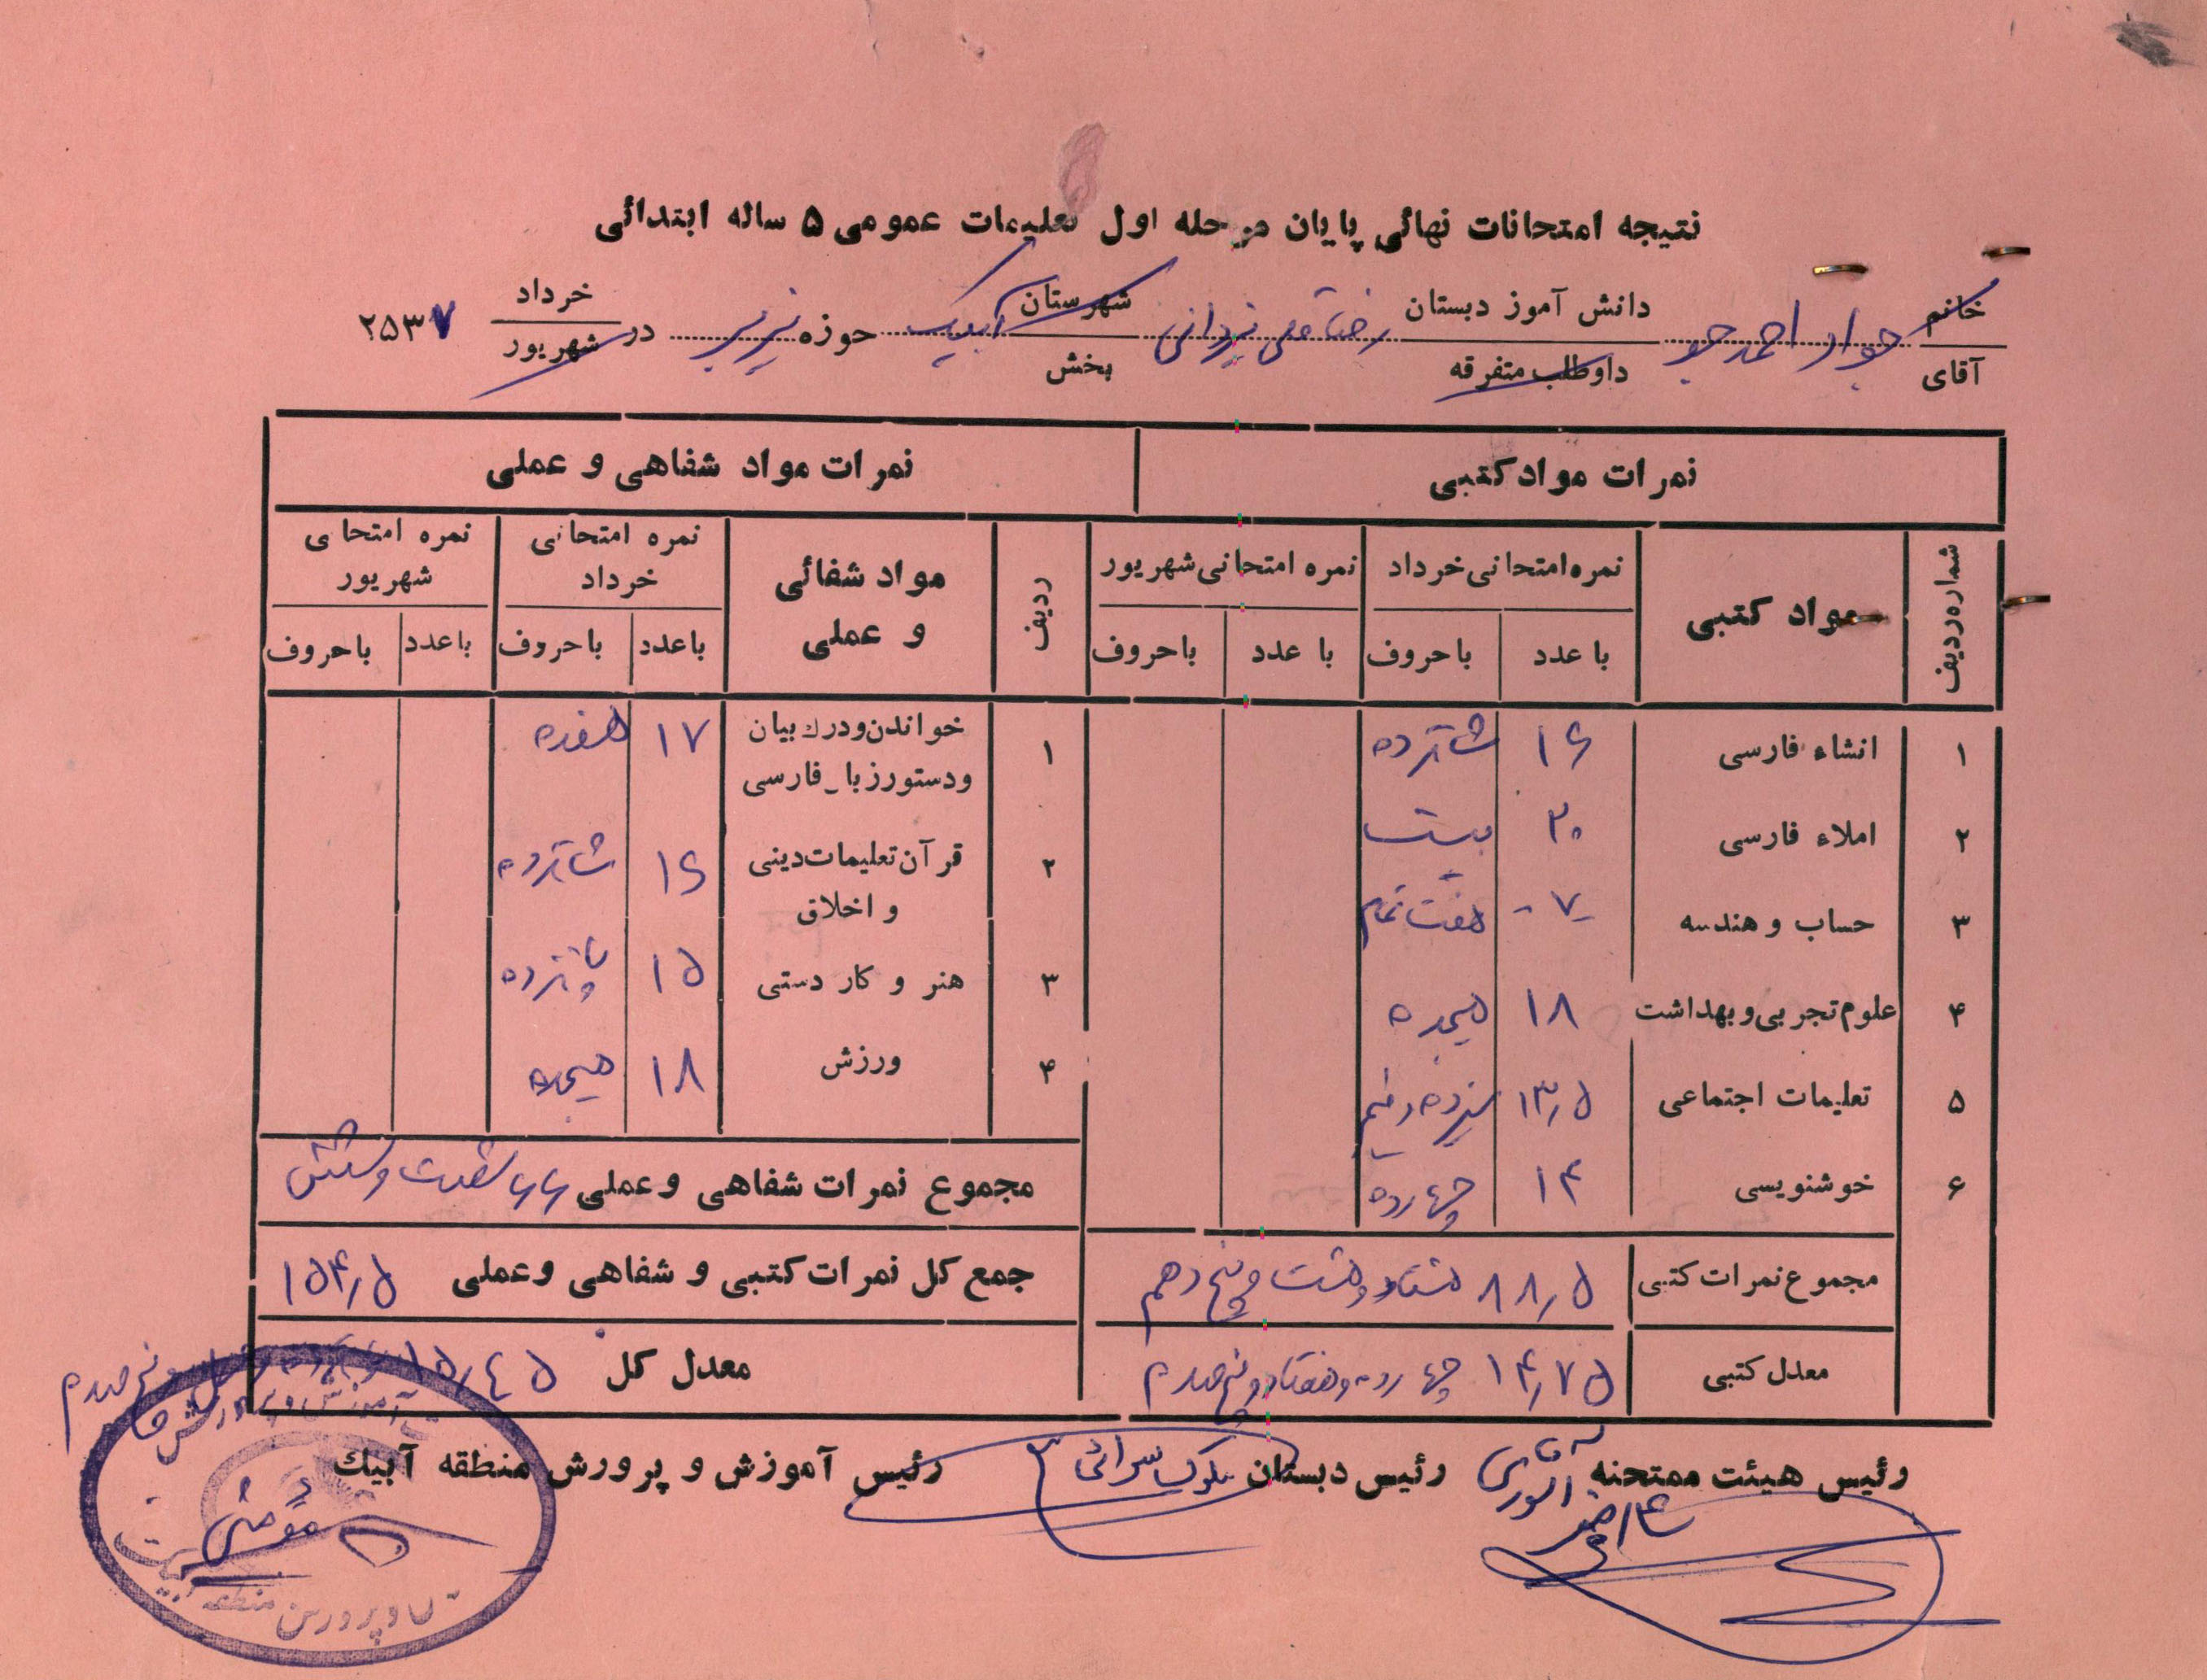 نتیجه امتحانات نهائی پایان مرحله اول تعلیمات عمومی ۵ ساله ابتدائی
خانم / آقای جواد احمدجو دانش آموز دبستان / داوطلب متفرقه رضاقلی یزدانی شهرستان / بخش آبیک حوزه در خرداد / شهریور ۲۵۳۷
نمرات مواد کتبی نمرات مواد شفاهی و عملی
شماره ردیف مواد کتبی نمره امتحانی خرداد نمره امتحانی شهریور ردیف مواد شفائی و عملی نمره امتحانی خرداد نمره امتحای شهریور
با عدد با حروف با عدد با حروف با عدد با حروف با عدد با حروف
۱ انشاء فارسی ۱۶ شانزده ۱ خواندن و درك بیان و دستور زبا_ فارسی ۱۷ هفده
۲ املاء فارسی ۲۰ بیست ۲ قرآن تعلیمات دینی و اخلاق ۱۶ شانزده
۳ حساب و هندسه -۷- هفت تمام ۳ هنر و کار دستی ۱۵ پانزده
۴ علوم تجربی و بهداشت ۱۸ هیجده ۴ ورزش ۱۸ هیجده
۵ تعلیمات اجتماعی ۱۳٫۵ سیزده و نیم
۶ خوشنویسی ۱۴ چهارده مجموع نمرات شفاهی و عملی ۶۶ شصت و شش
مجموع نمرات کتبی ۸۸٫۵ هشتاد و هشت و پنج دهم جمع کل نمرات کتبی و شفاهی و عملی ۱۵۴٫۵
معدل کتبی ۱۴٫۷۵ چهارده و هفتاد و پنج صدم معدل کل ۱۵٫۴۵ پانزده و چهل و پنج صدم
رئیس هیئت ممتحنه آقای انوری رئیس دبستان ملوک سرائی رئیس آموزش و پرورش منطقه آبیك